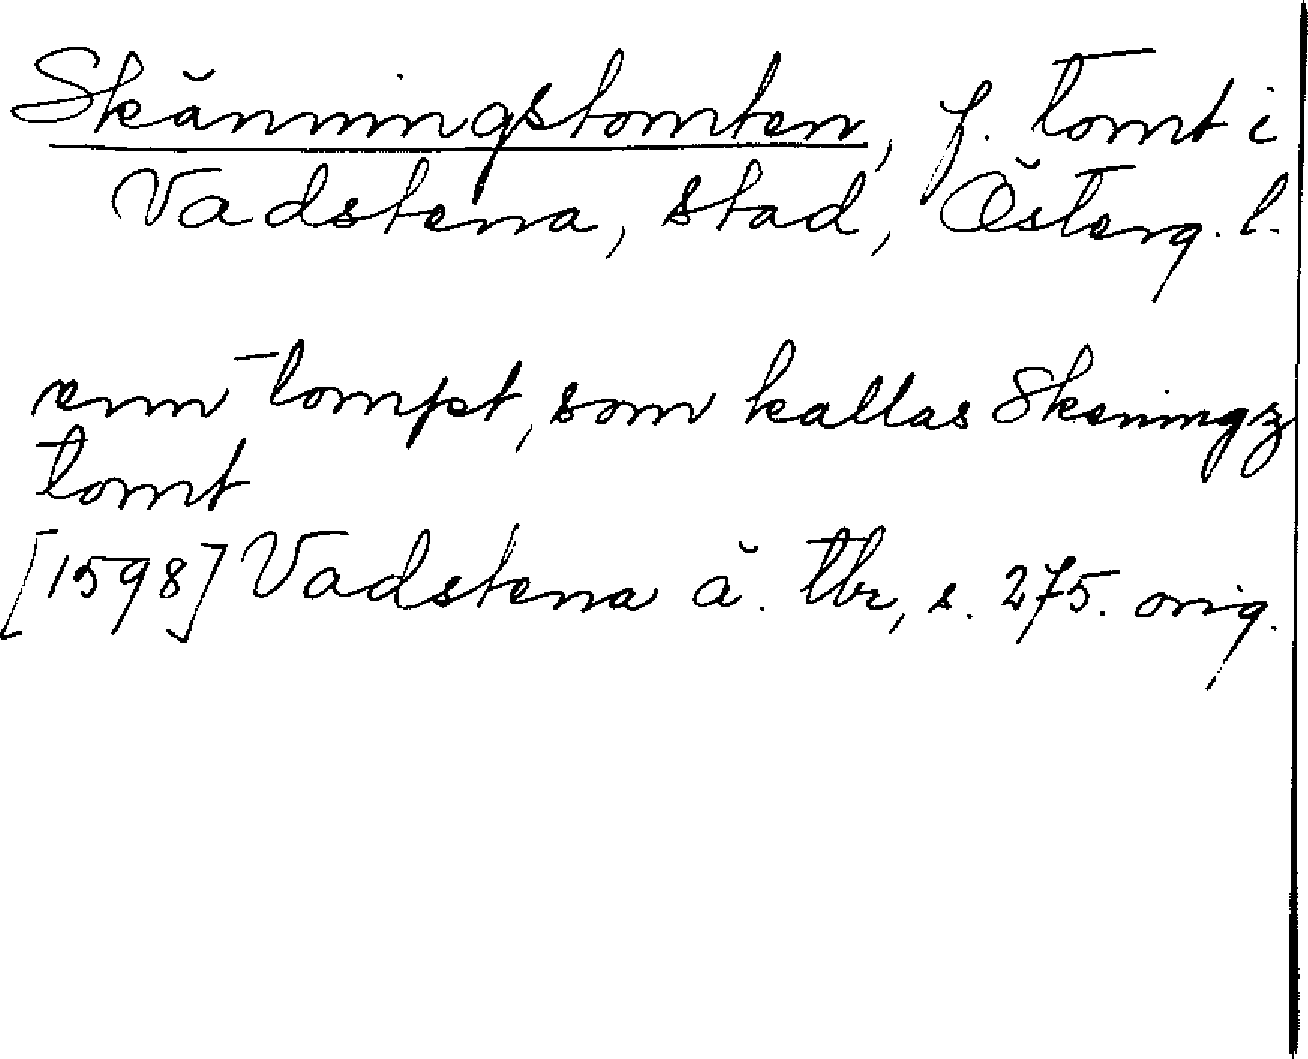 Skänningstomten, f. tomt i
Vadstena, stad, Österg. l.
enn tompt, som kallas Skeningz
tomt
[1598] Vadstena ä. tbr, s. 275. orig.